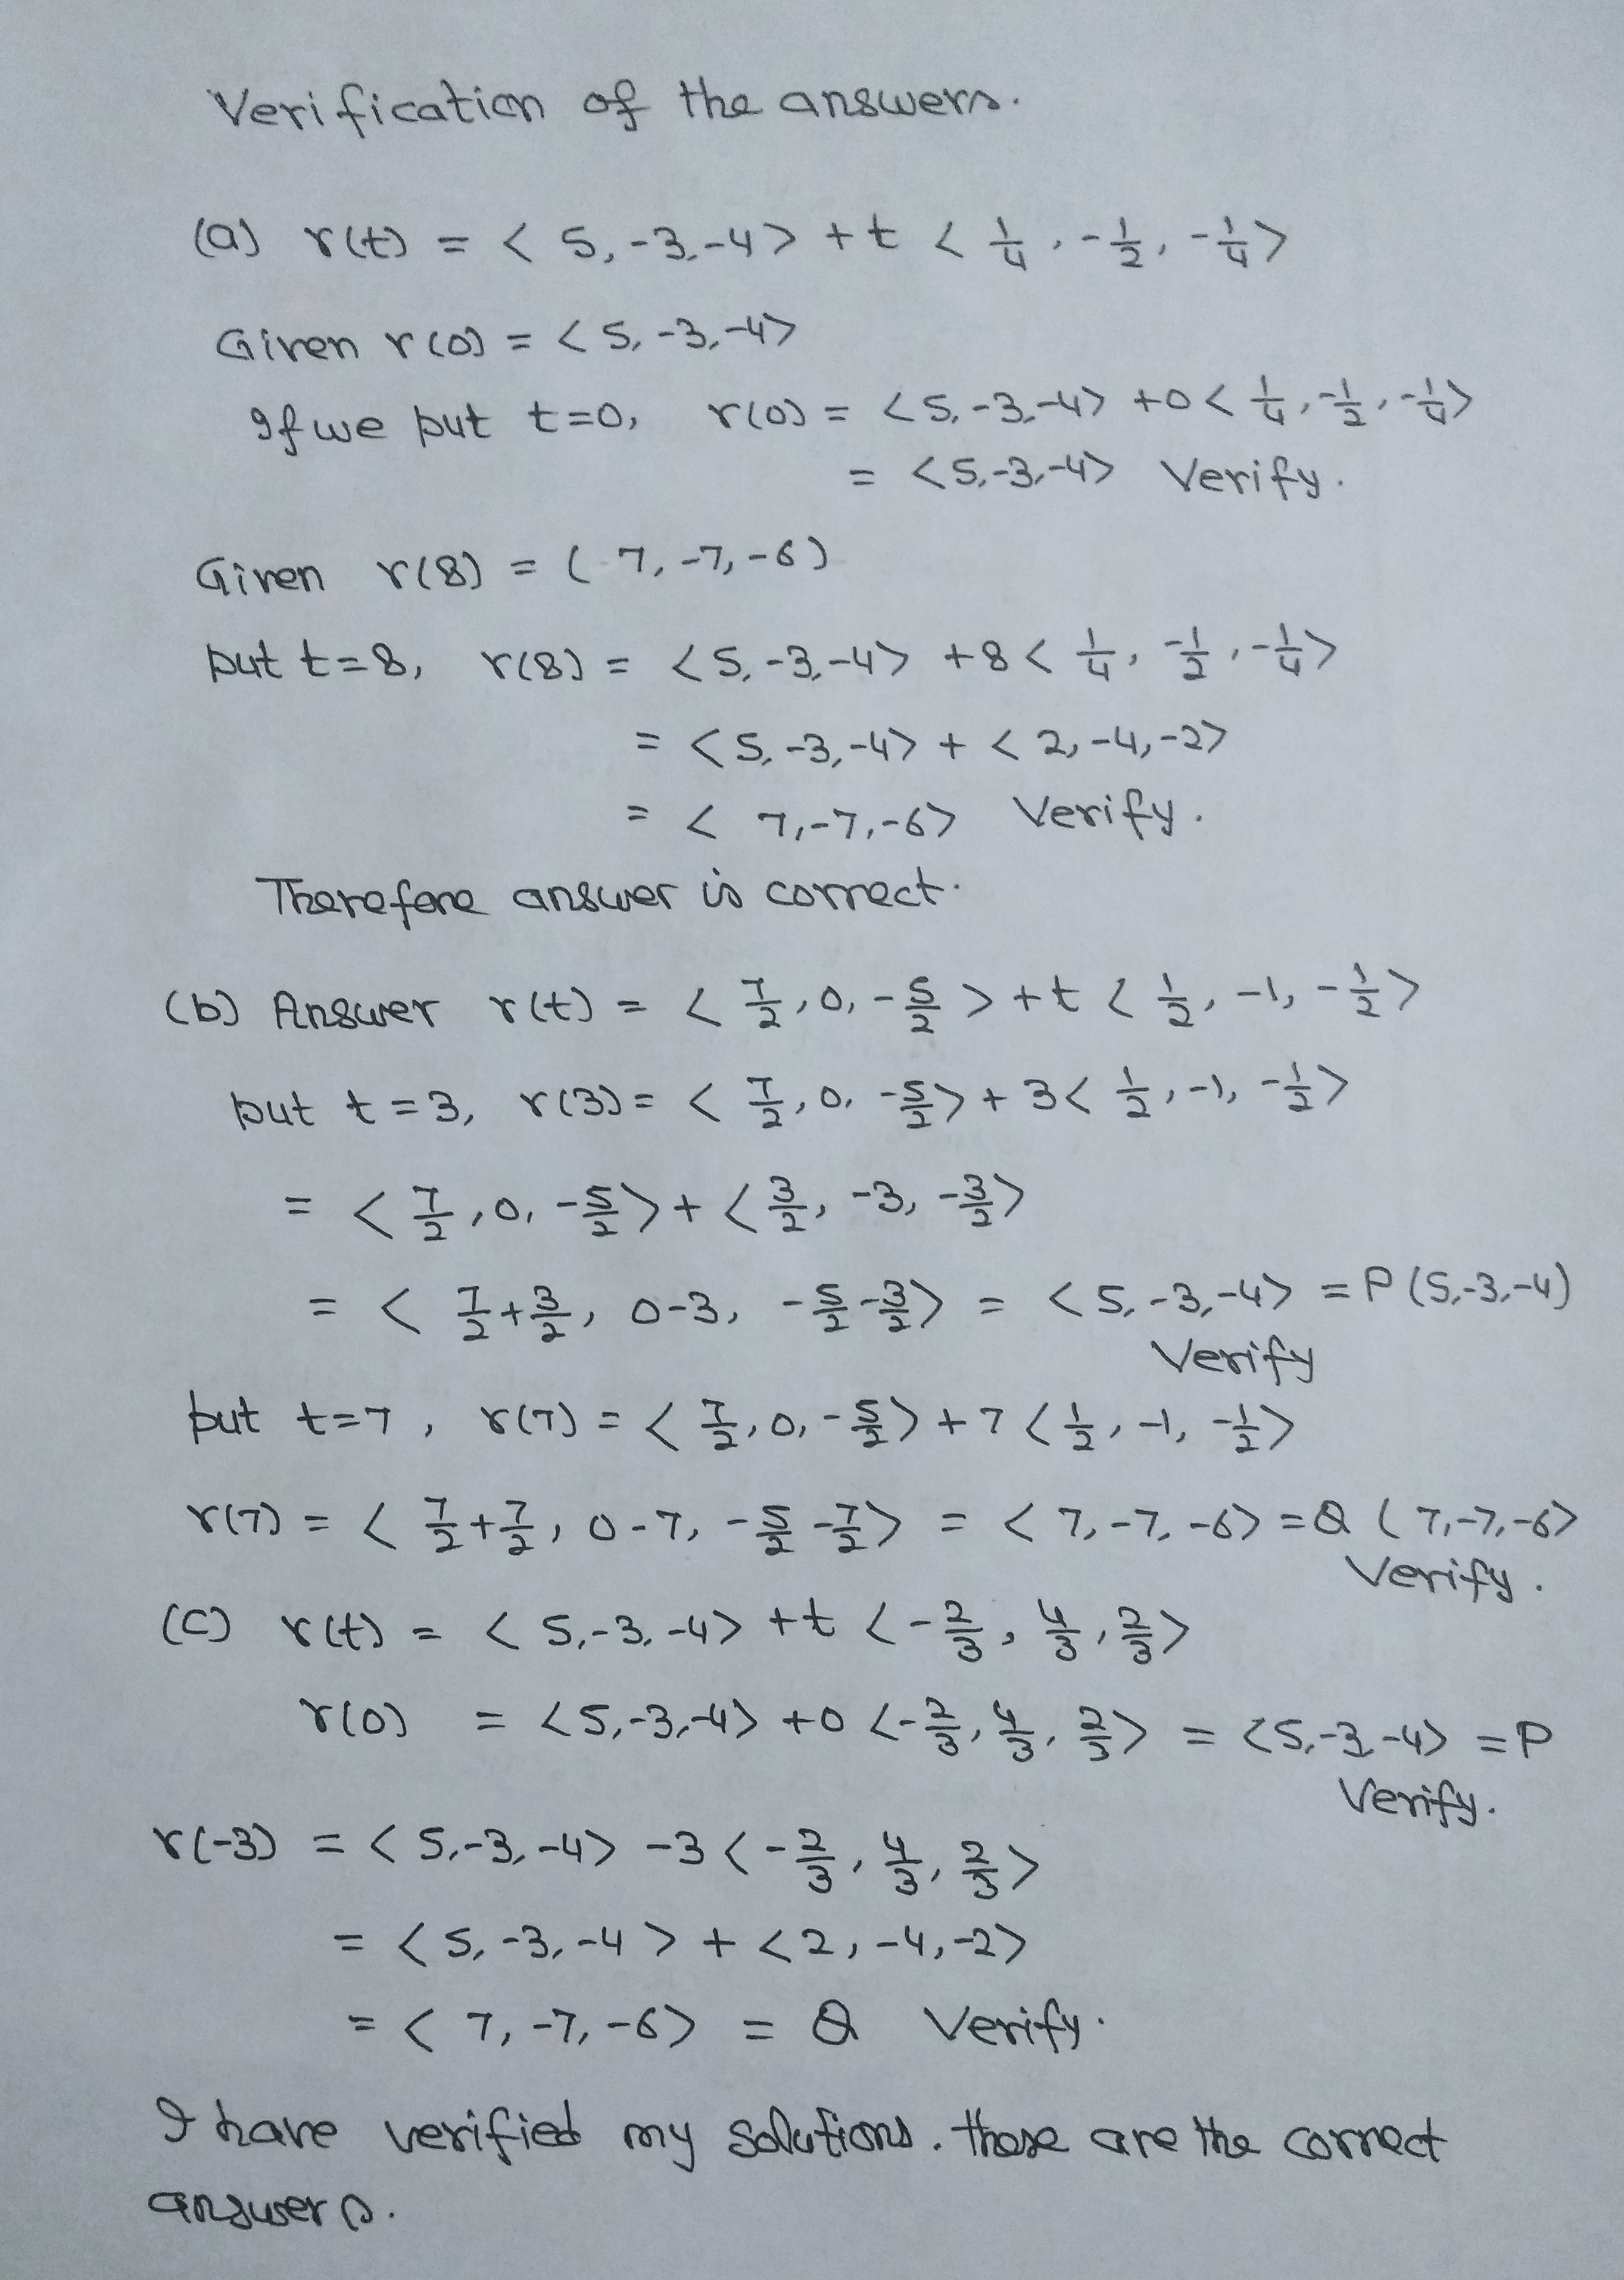 Verification of the answers.
(a) r(t) = < 5, -3, -4> + t < 1/4, -1/2, -1/4>
Given r(0) = <5, -3, -4>
If we put t=0, r(0) = <5, -3, -4> +0< 1/4, -1/2, -1/4>
= <5, -3, -4> Verify.
Given r(8) = ( 7, -7, -6)
put t=8, r(8) = <5, -3, -4> +8< 1/4, -1/2, -1/4>
= <5, -3, -4> + < 2, -4, -2>
= < 7, -7, -6> Verify.
Therefore answer is correct.
(b) Answer r(t) = < 7/2, 0, -5/2 > + t < 1/2, -1, -1/2>
put t = 3, r(3) = < 7/2, 0, -5/2> + 3< 1/2, -1, -1/2>
= < 7/2, 0, -5/2> + < 3/2, -3, -3/2>
= < 7/2+3/2, 0-3, -5/2-3/2> = <5, -3, -4> = P (5, -3, -4)
Verify
put t=7, r(7) = < 7/2, 0, -5/2> +7 < 1/2, -1, -1/2>
r(7) = < 7/2+7/2, 0-7, -5/2-7/2> = < 7, -7, -6> = Q ( 7, -7, -6>
Verify.
(c) r(t) = < 5, -3, -4> + t < -2/3, 4/3, 2/3>
r(0) = <5, -3, -4> +0 <-2/3, 4/3, 2/3> = <5, -3, -4> = P
Verify.
r(-3) = < 5, -3, -4> -3 < -2/3, 4/3, 2/3>
= < 5, -3, -4 > + <2, -4, -2>
= < 7, -7, -6> = Q Verify.
I have verified my solutions. these are the correct
answers.